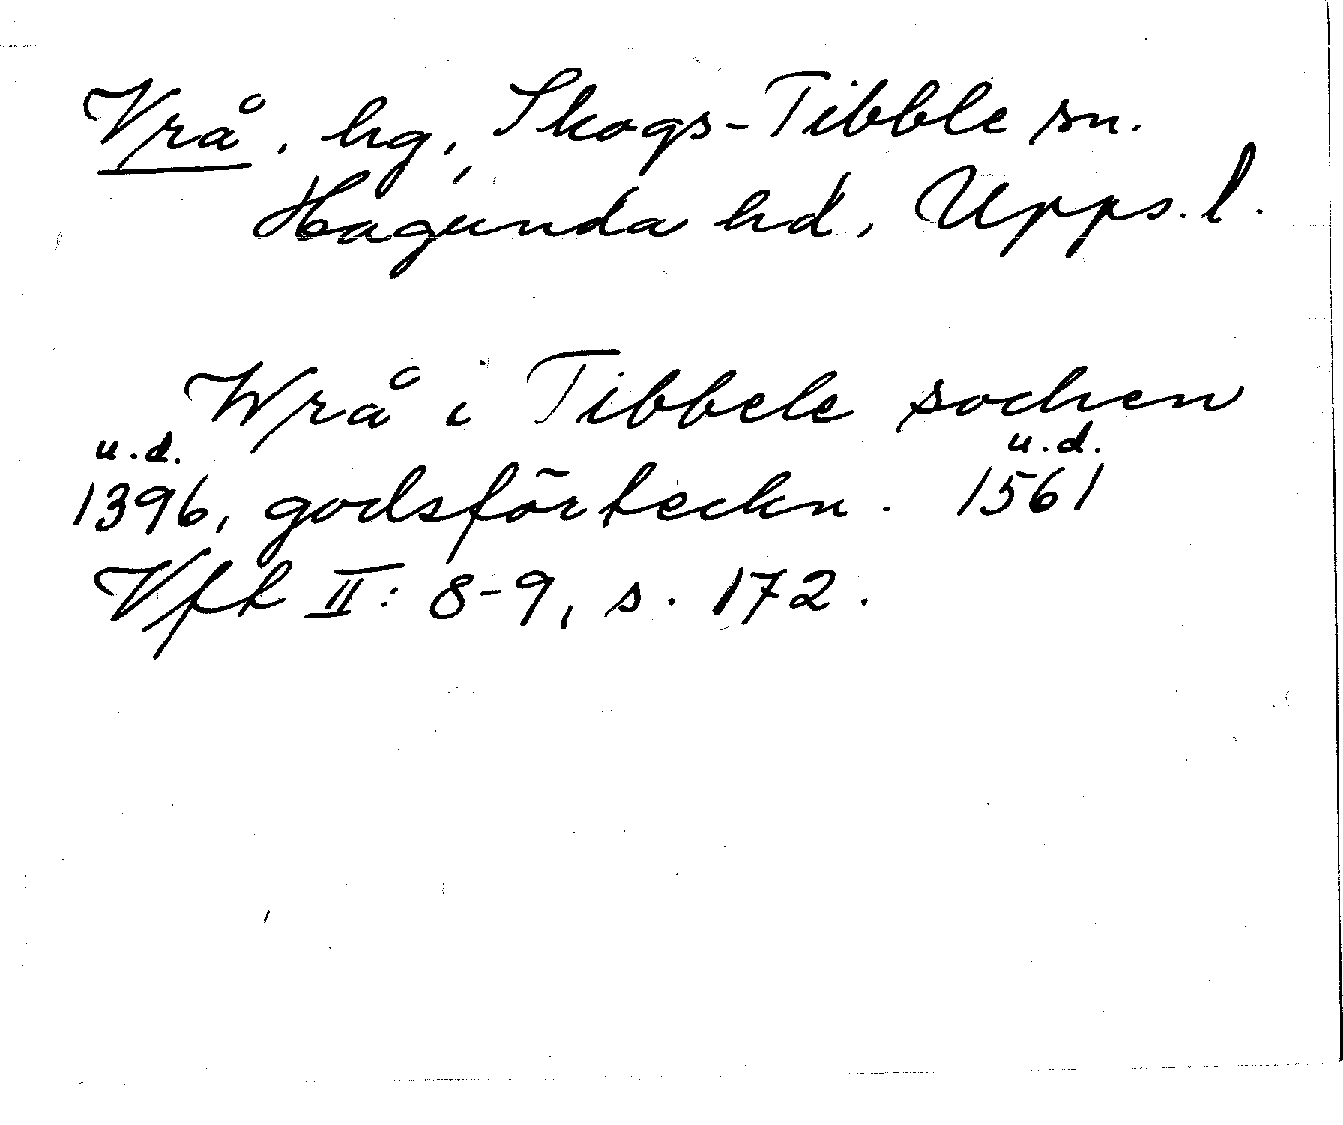 Vrå, hg, Skogs-Tibble sn.
Hagunda hd, Upps. l.
Wrå i Tibbele sochen
u.d. u.d.
1396, godsförteckn. 1561
Vfk II: 8-9, s. 172.